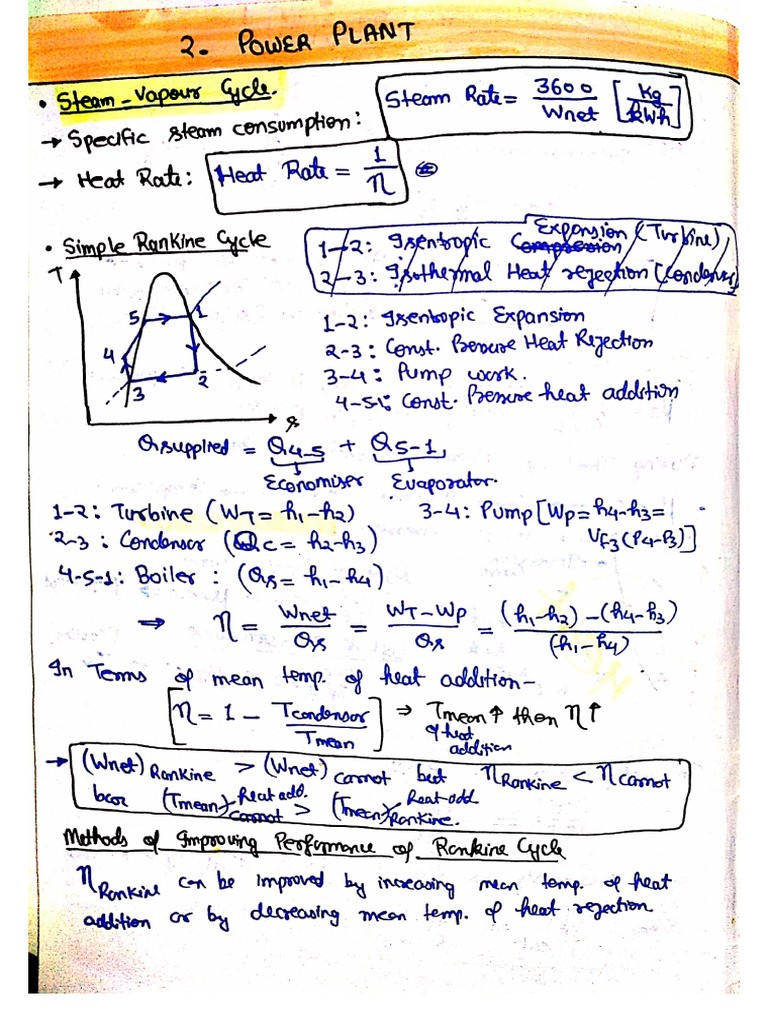 2. POWER PLANT
• Steam-Vapour Cycle.
→ Specific steam consumption: Steam Rate = 3600/Wnet [Kg/kWh]
→ Heat Rate: Heat Rate = 1/η
• Simple Rankine Cycle
1-2: Isentropic Compression Expansion (Turbine)
2-3: Isothermal Heat rejection (Condenser)
T
5
1
4
2
3
s
1-2: Isentropic Expansion
2-3: Const. Pressure Heat Rejection
3-4: Pump work.
4-5-1: Const. Pressure heat addition
Qsupplied = Q4-5 + Q5-1
Economiser Evaporator.
1-2: Turbine (WT = h1-h2)
3-4: Pump [Wp = h4-h3 = Vf3(P4-P3)]
2-3: Condensor (QC = h2-h3)
4-5-1: Boiler: (Qs = h1-h4)
⇒ η = Wnet/Qs = (WT-Wp)/Qs = ((h1-h2)-(h4-h3))/(h1-h4)
In Terms of mean temp. of heat addition-
[η = 1 - Tcondensor/Tmean] → Tmean↑ then η↑
of heat addition
→ (Wnet)Rankine > (Wnet)carnot but ηRankine < ηcarnot
bcoz (Tmean)heat add. carnot > (Tmean)heat add Rankine.
Methods of Improving Performance of Rankine Cycle
ηRankine can be improved by increasing mean temp. of heat
addition or by decreasing mean temp. of heat rejection